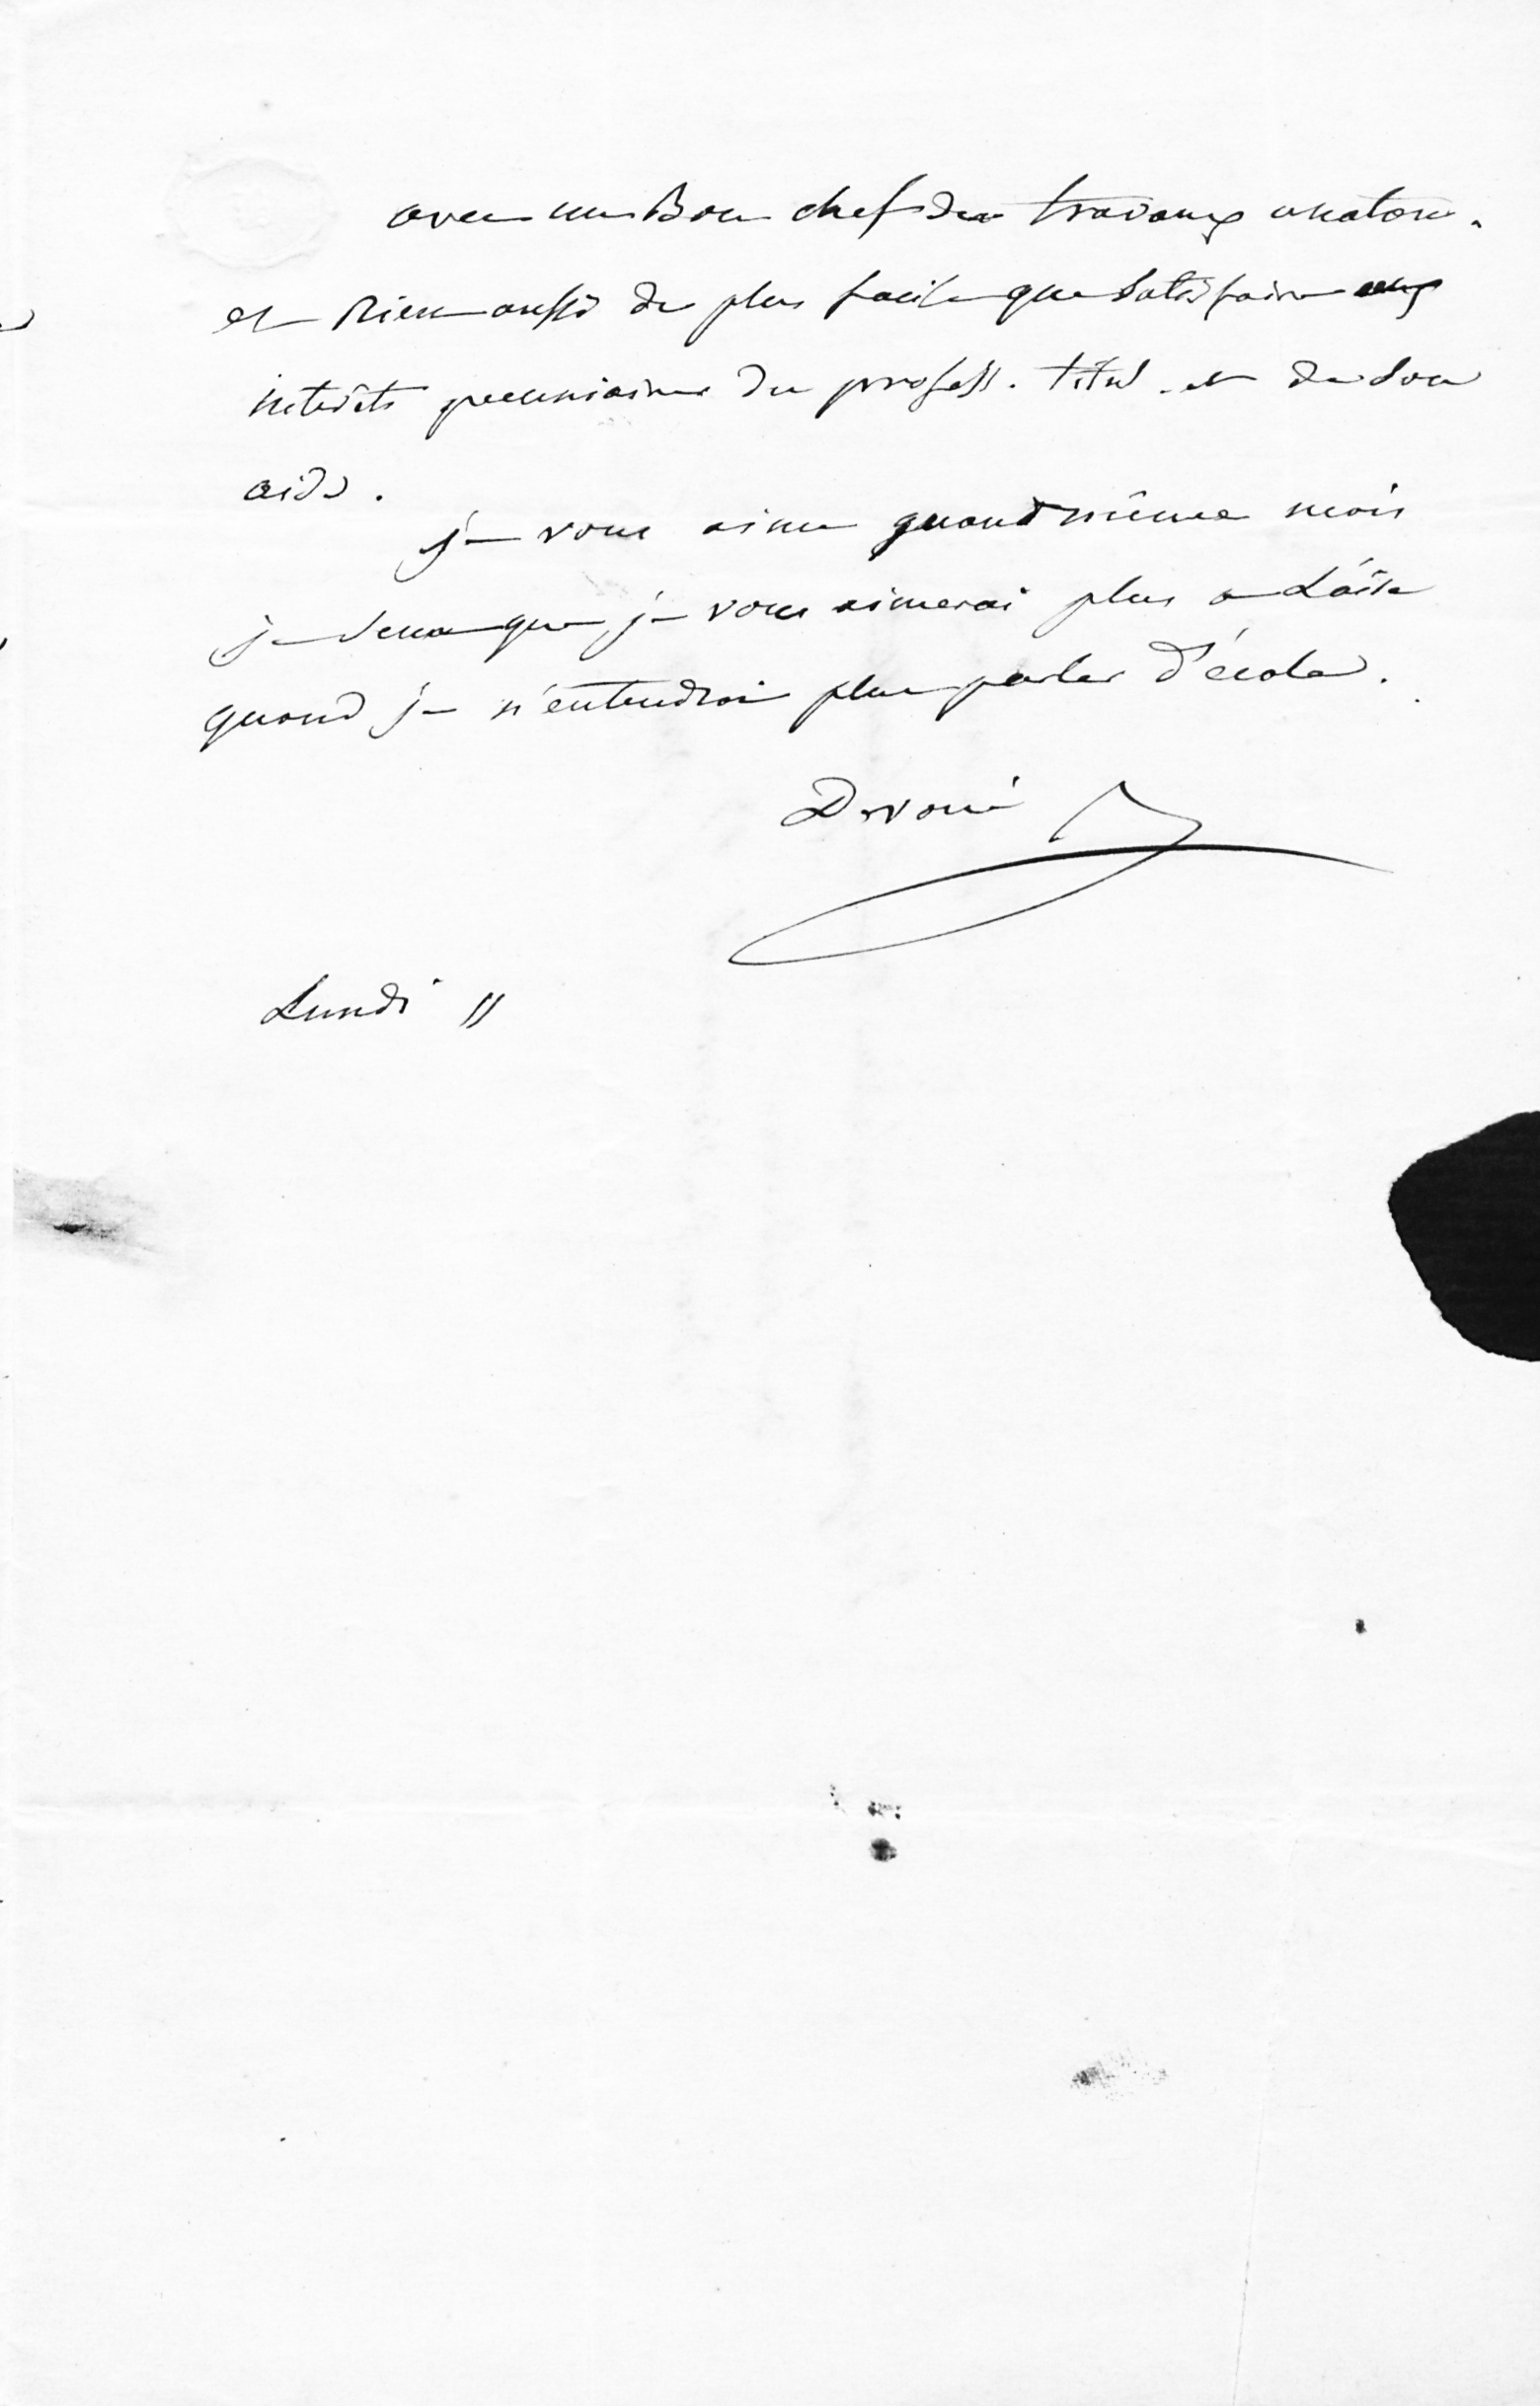 avec un Bon chef des travaux anatom.
et Rien aussi de plus facile que satisfaire aux
intérêts pecuniaires du profess. titul. et de son
aide.
je vous aime quand même mais
je sens que je vous aimerai plus a l'aise
quand je n'entendrai plus parler d'école.
Dévoué
Lundi 11